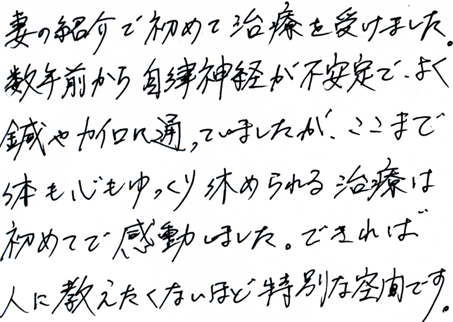 妻の紹介で初めて治療を受けました。
数年前から自律神経が不安定で、よく
鍼やカイロに通っていましたが、ここまで
体も心もゆっくり休められる治療は
初めてで感動しました。できれば
人に教えたくないほど特別な空間です。